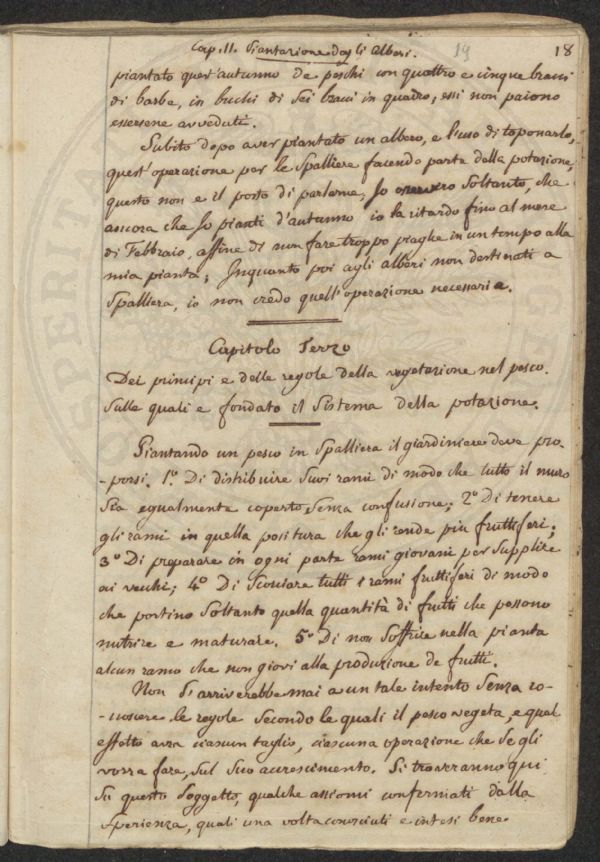 Cap. II. Piantazione degli Alberi.
19
18
piantato quest'autunno de peschi con quattro e cinque bracci
di barbe, in buchi di sei bracci in quadro; essi non paiono
essersene avveduti.
Subito dopo aver piantato un albero, e l'uso di toponarlo,
quest'operazione per le Spalliere facendo parte della potazione,
questo non e il posto di parlarne, Io osservero soltanto, che
ancora che Io pianti d'autunno io la ritardo fino al mese
di Febbraio, affine di non fare troppo piaghe in un tempo alla
mia pianta; Inquanto poi agli alberi non destinati a
Spalliera, io non credo quell'operazione necessaria.
Capitolo Terzo
Dei principi e delle regole della vegetazione nel pesco.
Sulle quali e fondato il Sistema della potazione.
Piantando un pesco in Spalliera il giardiniere deve pro-
-porsi. 1º. Di distribuire Suoi rami di modo che tutto il muro
Sia egualmente coperto, Senza confusione; 2º Di tenere
gli rami in quella positura che gli rende piu fruttiferi;
3º Di preparare in ogni parte rami giovani per Supplire
ai vecchi; 4º Di Scorciare tutti i rami fruttiferi di modo
che portino Soltanto quella quantità di frutti che possono
nutrire e maturare. 5º Di non Soffrire nella pianta
alcun ramo che non giovi alla produzione de frutti.
Non S'arriverebbe mai a un tale intento Senza co-
-noscere le regole Secondo le quali il pesco vegeta, e qual
effetto avra ciascun taglio, ciascuna operazione che Se gli
vorra fare, Sul Suo accrescimento. Si troveranno qui
Su questo Soggetto, qualche assiomi confermati dalla
Sperienza, quali una volta conosciuti e intesi bene